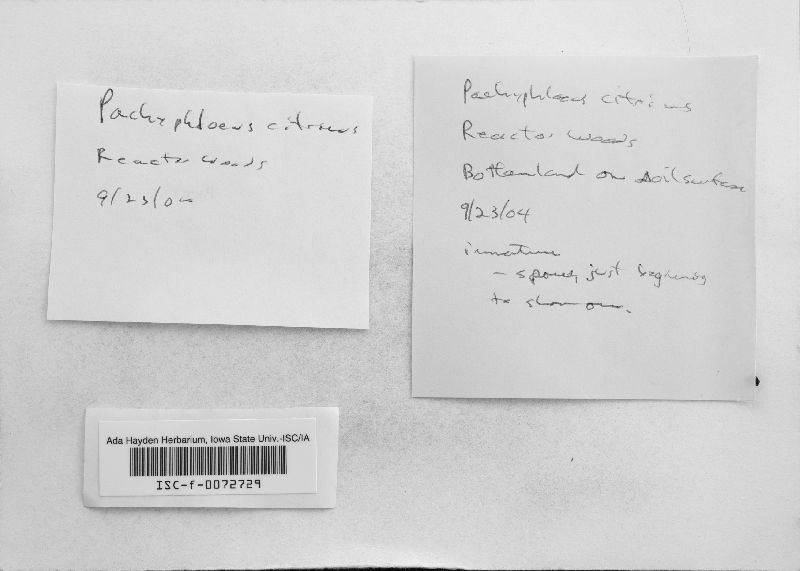 Pachyphloeus citrinus
Reactor woods
9/23/04
Pachyphloeus citrinus
Reactor woods
Bottomland on soil surface
9/23/04
immature
- spores just beginning
to show orn.
Ada Hayden Herbarium, Iowa State Univ.-ISC/IA
ISC-f-0072729